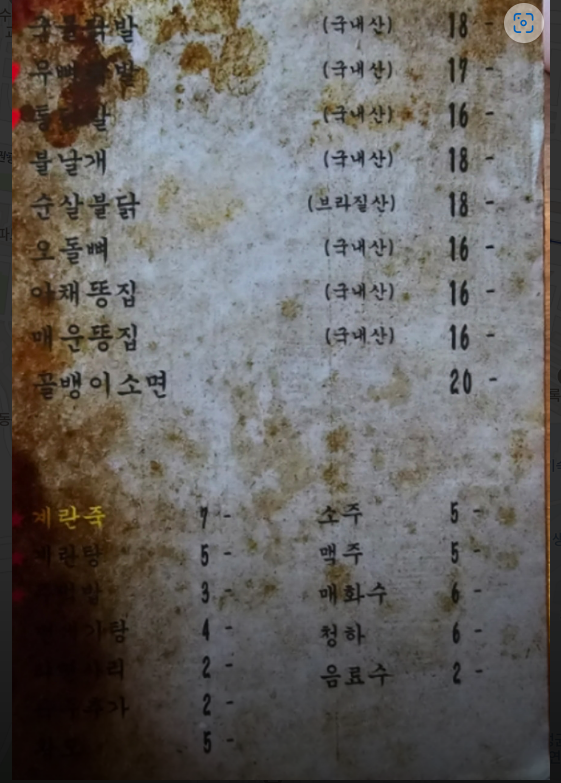 국물닭발 (국내산) 18 -
무뼈닭발 (국내산) 17 -
(국내산) 16 -
불날개 (국내산) 18 -
순살불닭 (브라질산) 18 -
오돌뼈 (국내산) 16 -
야채똥집 (국내산) 16 -
매운똥집 (국내산) 16 -
골뱅이소면 20 -
계란죽 7 -
계란탕 5 -
3 -
4 -
2 -
2 -
5 -
소주 5 -
맥주 5 -
매화수 6 -
청하 6 -
음료수 2 -